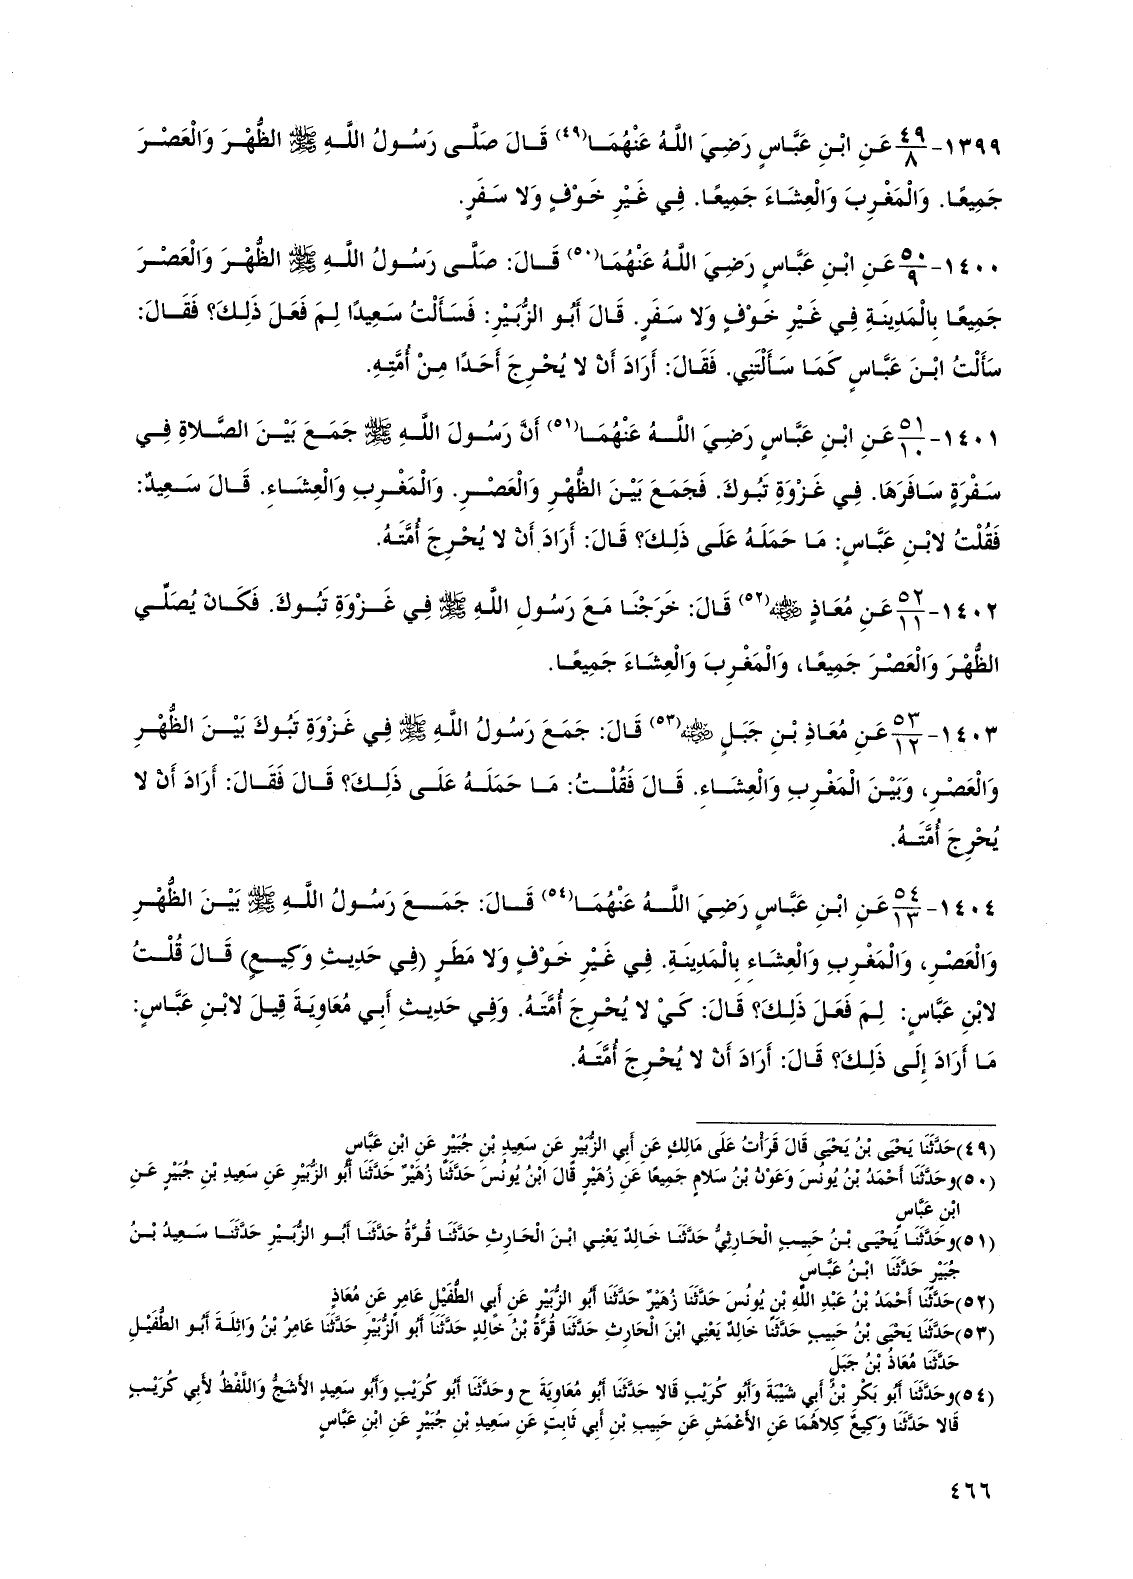 ١٣٩٩-٤٩/٨ عَنِ ابْنِ عَبَّاسٍ رَضِيَ اللَّهُ عَنْهُمَا(٤٩) قَالَ صَلَّى رَسُولُ اللَّهِ ﷺ الظُّهْرَ وَالْعَصْرَ
جَمِيعًا. وَالْمَغْرِبَ وَالْعِشَاءَ جَمِيعًا. فِي غَيْرِ خَوْفٍ وَلا سَفَرٍ.
١٤٠٠-٥٠/٩ عَنِ ابْنِ عَبَّاسٍ رَضِيَ اللَّهُ عَنْهُمَا(٥٠) قَالَ: صَلَّى رَسُولُ اللَّهِ ﷺ الظُّهْرَ وَالْعَصْرَ
جَمِيعًا بِالْمَدِينَةِ فِي غَيْرِ خَوْفٍ وَلا سَفَرٍ. قَالَ أَبُو الزُّبَيْرِ: فَسَأَلْتُ سَعِيدًا لِمَ فَعَلَ ذَلِكَ؟ فَقَالَ:
سَأَلْتُ ابْنَ عَبَّاسٍ كَمَا سَأَلْتَنِي. فَقَالَ: أَرَادَ أَنْ لا يُحْرِجَ أَحَدًا مِنْ أُمَّتِهِ.
١٤٠١-٥١/١٠ عَنِ ابْنِ عَبَّاسٍ رَضِيَ اللَّهُ عَنْهُمَا(٥١) أَنَّ رَسُولَ اللَّهِ ﷺ جَمَعَ بَيْنَ الصَّلاةِ فِي
سَفْرَةٍ سَافَرَهَا. فِي غَزْوَةِ تَبُوكَ. فَجَمَعَ بَيْنَ الظُّهْرِ وَالْعَصْرِ. وَالْمَغْرِبِ وَالْعِشَاءِ. قَالَ سَعِيدٌ:
فَقُلْتُ لابْنِ عَبَّاسٍ: مَا حَمَلَهُ عَلَى ذَلِكَ؟ قَالَ: أَرَادَ أَنْ لا يُحْرِجَ أُمَّتَهُ.
١٤٠٢-٥٢/١١ عَنِ مُعَاذٍ ﷺ(٥٢) قَالَ: خَرَجْنَا مَعَ رَسُولِ اللَّهِ ﷺ فِي غَزْوَةِ تَبُوكَ. فَكَانَ يُصَلِّي
الظُّهْرَ وَالْعَصْرَ جَمِيعًا، وَالْمَغْرِبَ وَالْعِشَاءَ جَمِيعًا.
١٤٠٣-٥٣/١٢ عَنِ مُعَاذِ بْنِ جَبَلٍ ﷺ(٥٣) قَالَ: جَمَعَ رَسُولُ اللَّهِ ﷺ فِي غَزْوَةِ تَبُوكَ بَيْنَ الظُّهْرِ
وَالْعَصْرِ، وَبَيْنَ الْمَغْرِبِ وَالْعِشَاءِ. قَالَ فَقُلْتُ: مَا حَمَلَهُ عَلَى ذَلِكَ؟ قَالَ فَقَالَ: أَرَادَ أَنْ لا
يُحْرِجَ أُمَّتَهُ.
١٤٠٤-٥٤/١٣ عَنِ ابْنِ عَبَّاسٍ رَضِيَ اللَّهُ عَنْهُمَا(٥٤) قَالَ: جَمَعَ رَسُولُ اللَّهِ ﷺ بَيْنَ الظُّهْرِ
وَالْعَصْرِ، وَالْمَغْرِبِ وَالْعِشَاءِ بِالْمَدِينَةِ. فِي غَيْرِ خَوْفٍ وَلا مَطَرٍ (فِي حَدِيثِ وَكِيعٍ) قَالَ قُلْتُ
لابْنِ عَبَّاسٍ: لِمَ فَعَلَ ذَلِكَ؟ قَالَ: كَيْ لا يُحْرِجَ أُمَّتَهُ. وَفِي حَدِيثِ أَبِي مُعَاوِيَةَ قِيلَ لابْنِ عَبَّاسٍ:
مَا أَرَادَ إِلَى ذَلِكَ؟ قَالَ: أَرَادَ أَنْ لا يُحْرِجَ أُمَّتَهُ.
(٤٩)حَدَّثَنَا يَحْيَى بْنُ يَحْيَى قَالَ قَرَأْتُ عَلَى مَالِكٍ عَن أَبِي الزُّبَيْرِ عَن سَعِيدِ بْنِ جُبَيْرٍ عَنِ ابْنِ عَبَّاسٍ
(٥٠)وحَدَّثَنَا أَحْمَدُ بْنُ يُونُسَ وَعَوْنُ بْنُ سَلامٍ جَمِيعًا عَن زُهَيْرٍ قَالَ ابْنُ يُونُسَ حَدَّثَنَا زُهَيْرٌ حَدَّثَنَا أَبُو الزُّبَيْرِ عَن سَعِيدِ بْنِ جُبَيْرٍ عَنِ
ابْنِ عَبَّاسٍ
(٥١)وحَدَّثَنَا يَحْيَى بْنُ حَبِيبٍ الْحَارِثِيُّ حَدَّثَنَا خَالِدٌ يَعْنِي ابْنَ الْحَارِثِ حَدَّثَنَا قُرَّةُ حَدَّثَنَا أَبُو الزُّبَيْرِ حَدَّثَنَا سَعِيدُ بْنُ
جُبَيْرٍ حَدَّثَنَا ابْنُ عَبَّاسٍ
(٥٢)حَدَّثَنَا أَحْمَدُ بْنُ عَبْدِ اللَّهِ بْنِ يُونُسَ حَدَّثَنَا زُهَيْرٌ حَدَّثَنَا أَبُو الزُّبَيْرِ عَن أَبِي الطُّفَيْلِ عَامِرٍ عَن مُعَاذٍ
(٥٣)حَدَّثَنَا يَحْيَى بْنُ حَبِيبٍ حَدَّثَنَا خَالِدٌ يَعْنِي ابْنَ الْحَارِثِ حَدَّثَنَا قُرَّةُ بْنُ خَالِدٍ حَدَّثَنَا أَبُو الزُّبَيْرِ حَدَّثَنَا عَامِرُ بْنُ وَاثِلَةَ أَبُو الطُّفَيْلِ
حَدَّثَنَا مُعَاذُ بْنُ جَبَلٍ
(٥٤)وحَدَّثَنَا أَبُو بَكْرِ بْنُ أَبِي شَيْبَةَ وَأَبُو كُرَيْبٍ قَالا حَدَّثَنَا أَبُو مُعَاوِيَةَ ح وحَدَّثَنَا أَبُو كُرَيْبٍ وَأَبُو سَعِيدٍ الأَشَجُّ وَاللَّفْظُ لأَبِي كُرَيْبٍ
قَالا حَدَّثَنَا وَكِيعٌ كِلاهُمَا عَنِ الأَعْمَشِ عَن حَبِيبِ بْنِ أَبِي ثَابِتٍ عَن سَعِيدِ بْنِ جُبَيْرٍ عَنِ ابْنِ عَبَّاسٍ
٤٦٦